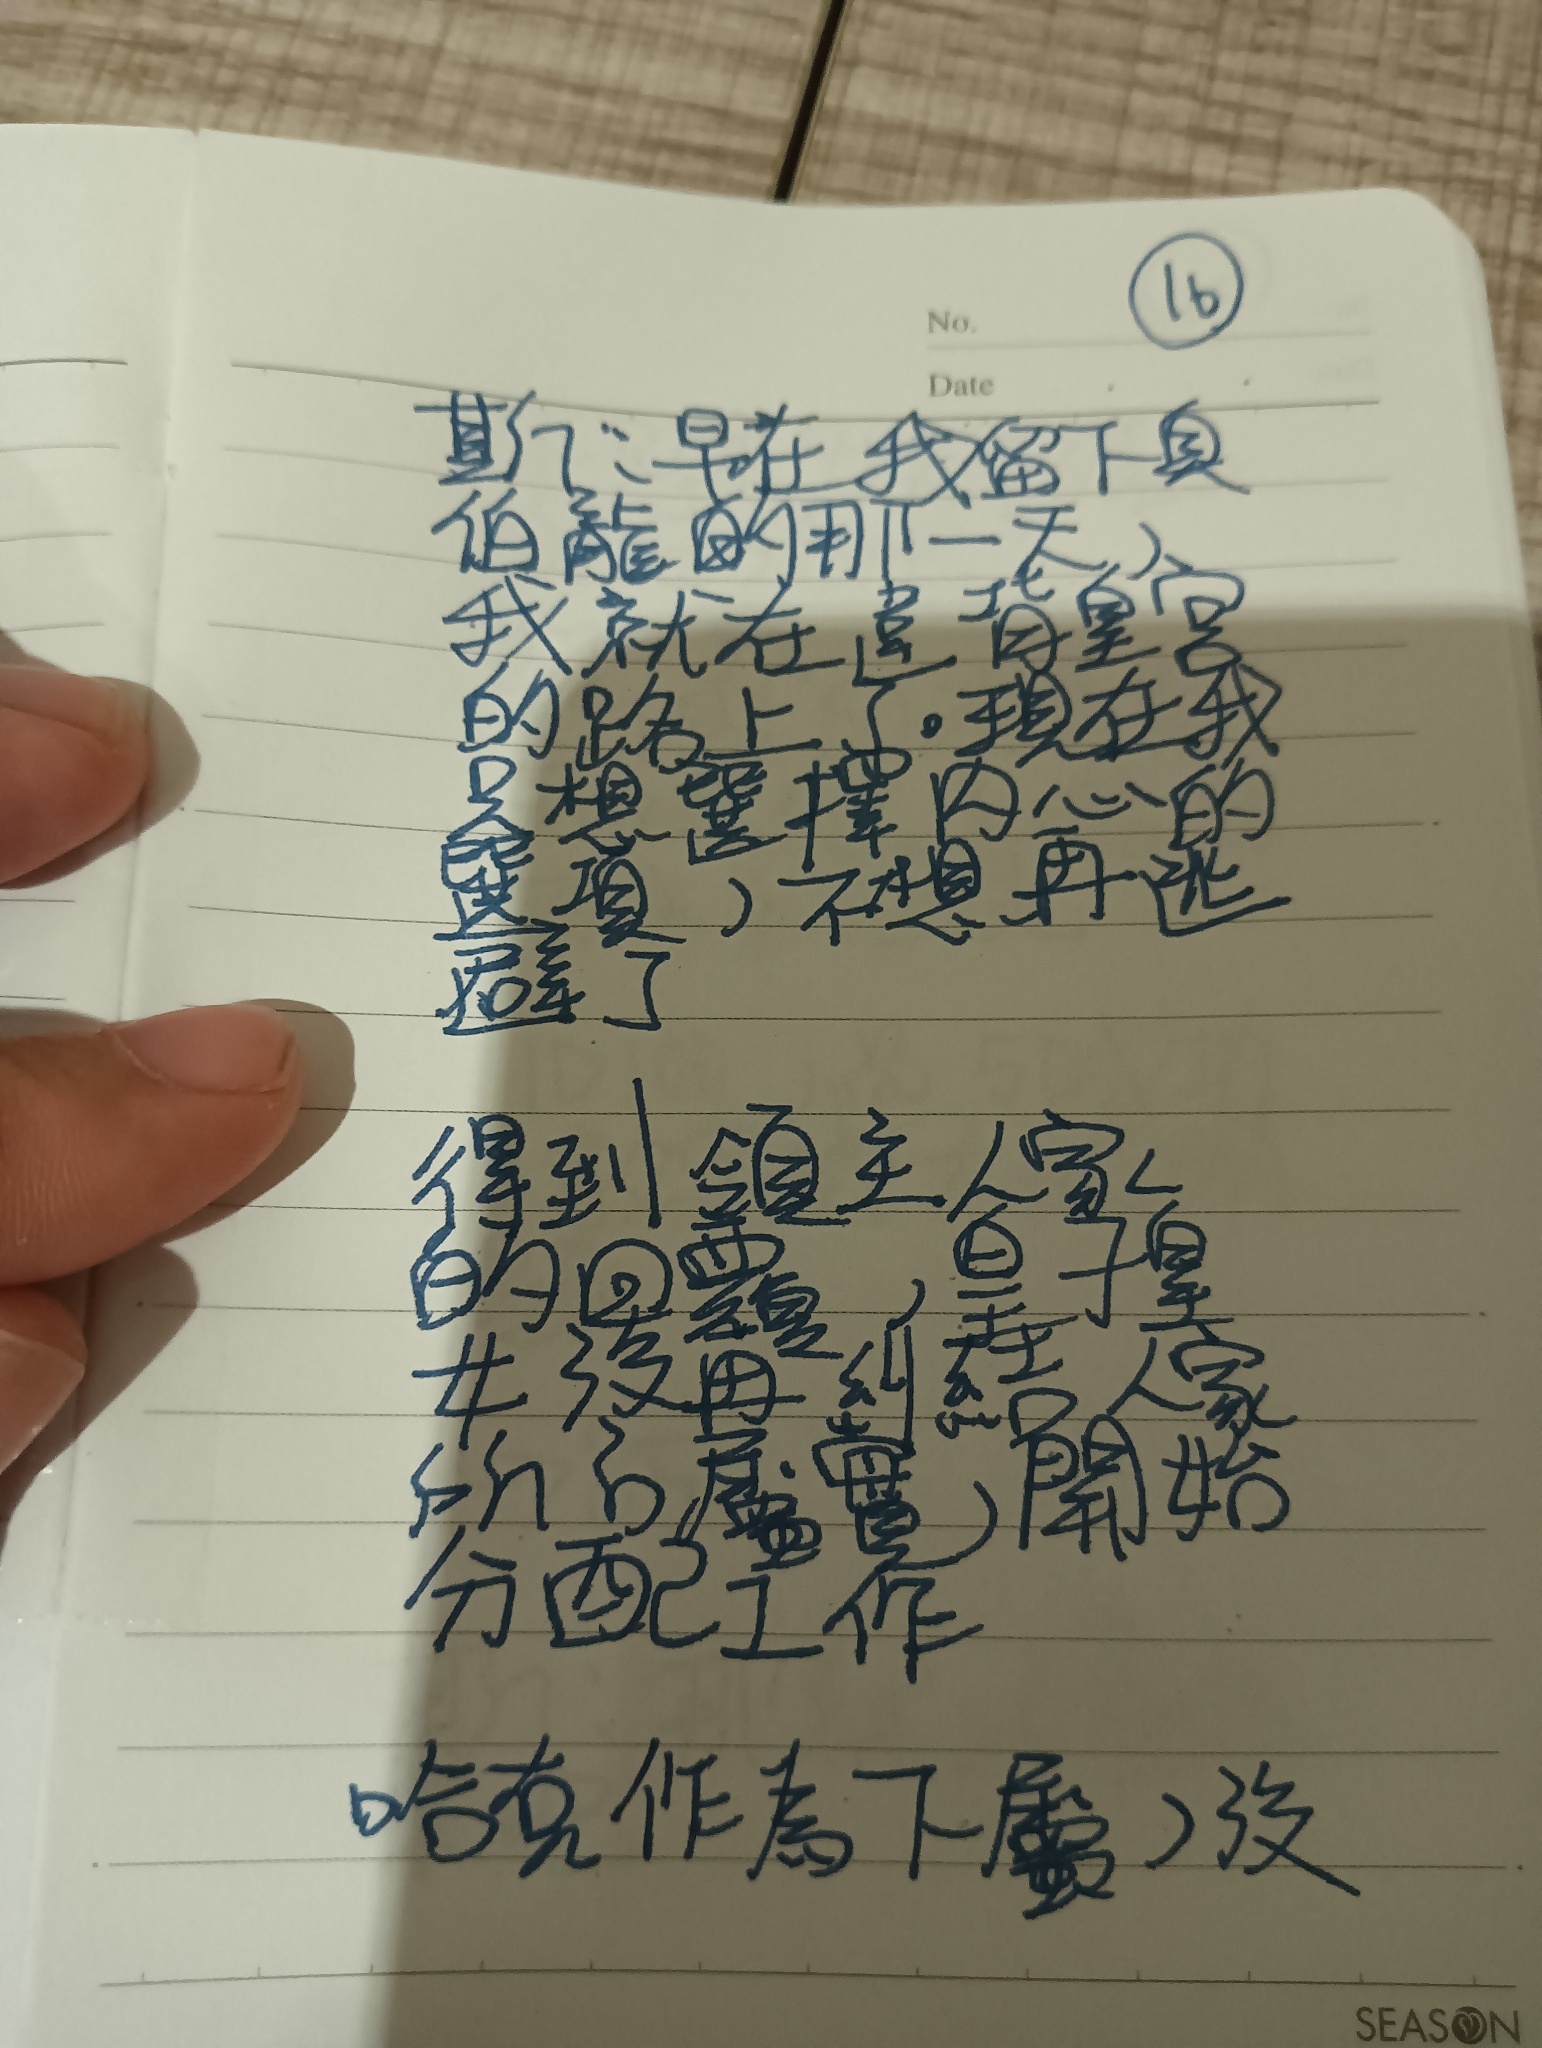 16
No.
Date
斯ㄟ：早在我留下貝
伯龍的那一天，
我就在違背皇宮
的路上了。現在我
只想選擇內心的
選項，不想再逃
避了
得到領主人家
的回覆，星子皇
女沒再糾結人家
所ㄋ屬實，開始
分配工作
哈克作為下屬，沒
SEASON